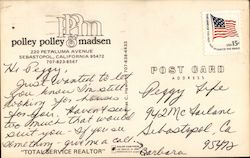 PPM
polley polley madsen
220 PETALUMA AVENUE
SEBASTOPOL, CALIFORNIA 95472
707-823-8567
Hi Peggy,
Just wanted to let
you know I'm still
looking for houses
for you. Haven't seen
too much that would
suit you - If you see
something - give me a call.
Barbara
"TOTAL SERVICE REALTOR"
POST CARD
ADDRESS
USA 15c
Peggy Fife
942 McFarlane
Sebastopol, Ca
95472